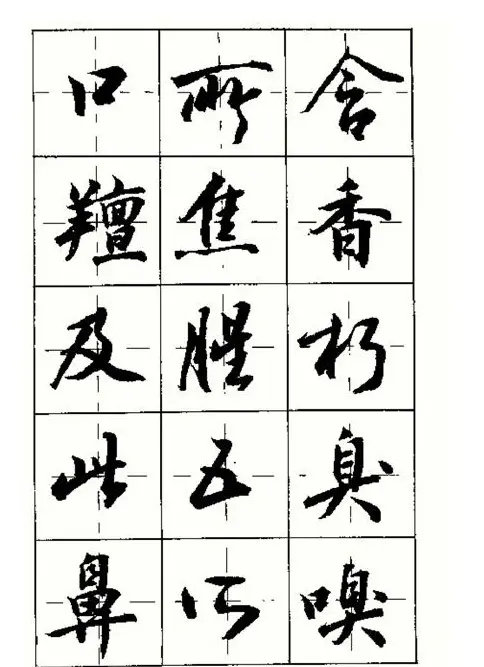 口所含
羶焦香
及腥朽
此五臭
鼻所嗅